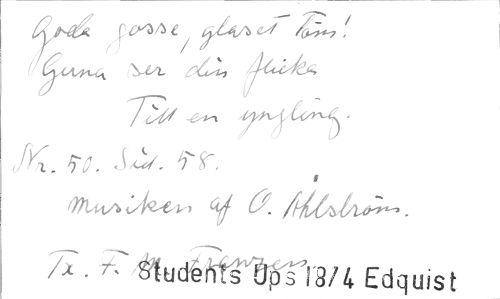 Goda gosse, glaset töm!
Gerna ser din flicka
Till en yngling.
Nr. 50. Sid. 58.
Musiken af O. Åhlström.
Tx. F. M. Franzén
Students Ups 18/4 Edquist